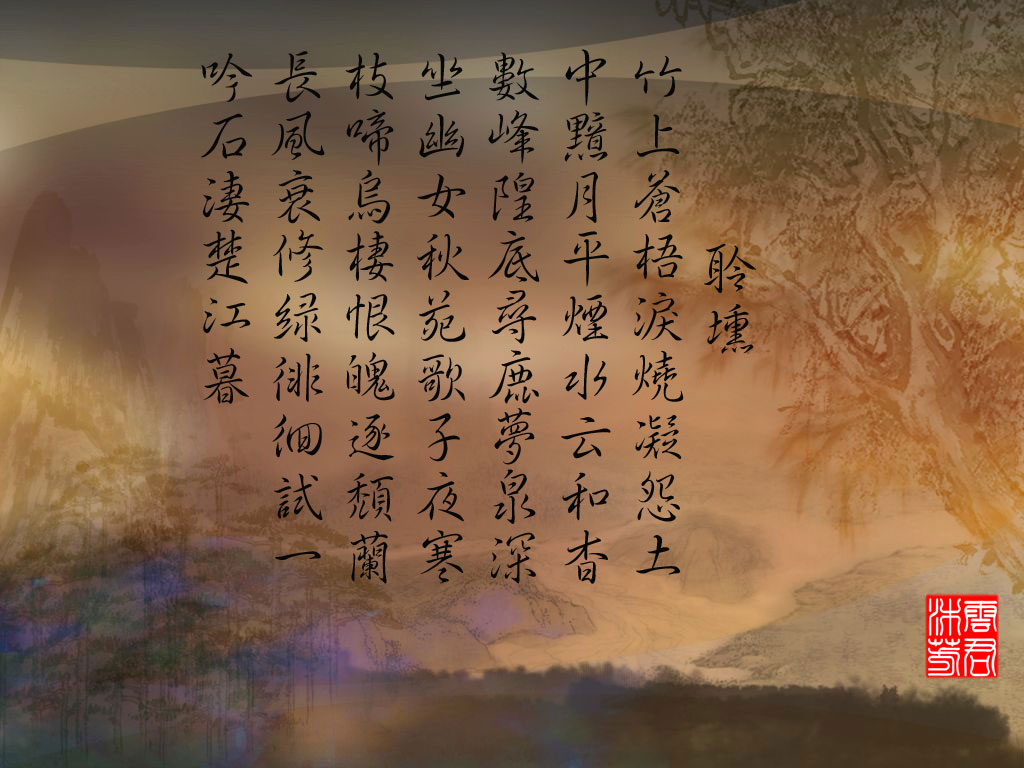 聆壎
竹上蒼梧淚燒凝怨土
中黯月平煙水云和杳
數峰隍底尋鹿夢泉深
坐幽女秋苑歌子夜寒
枝啼烏棲恨魄逐頹蘭
長風衰修绿徘徊試一
吟石淒楚江暮
雲君
沐芳